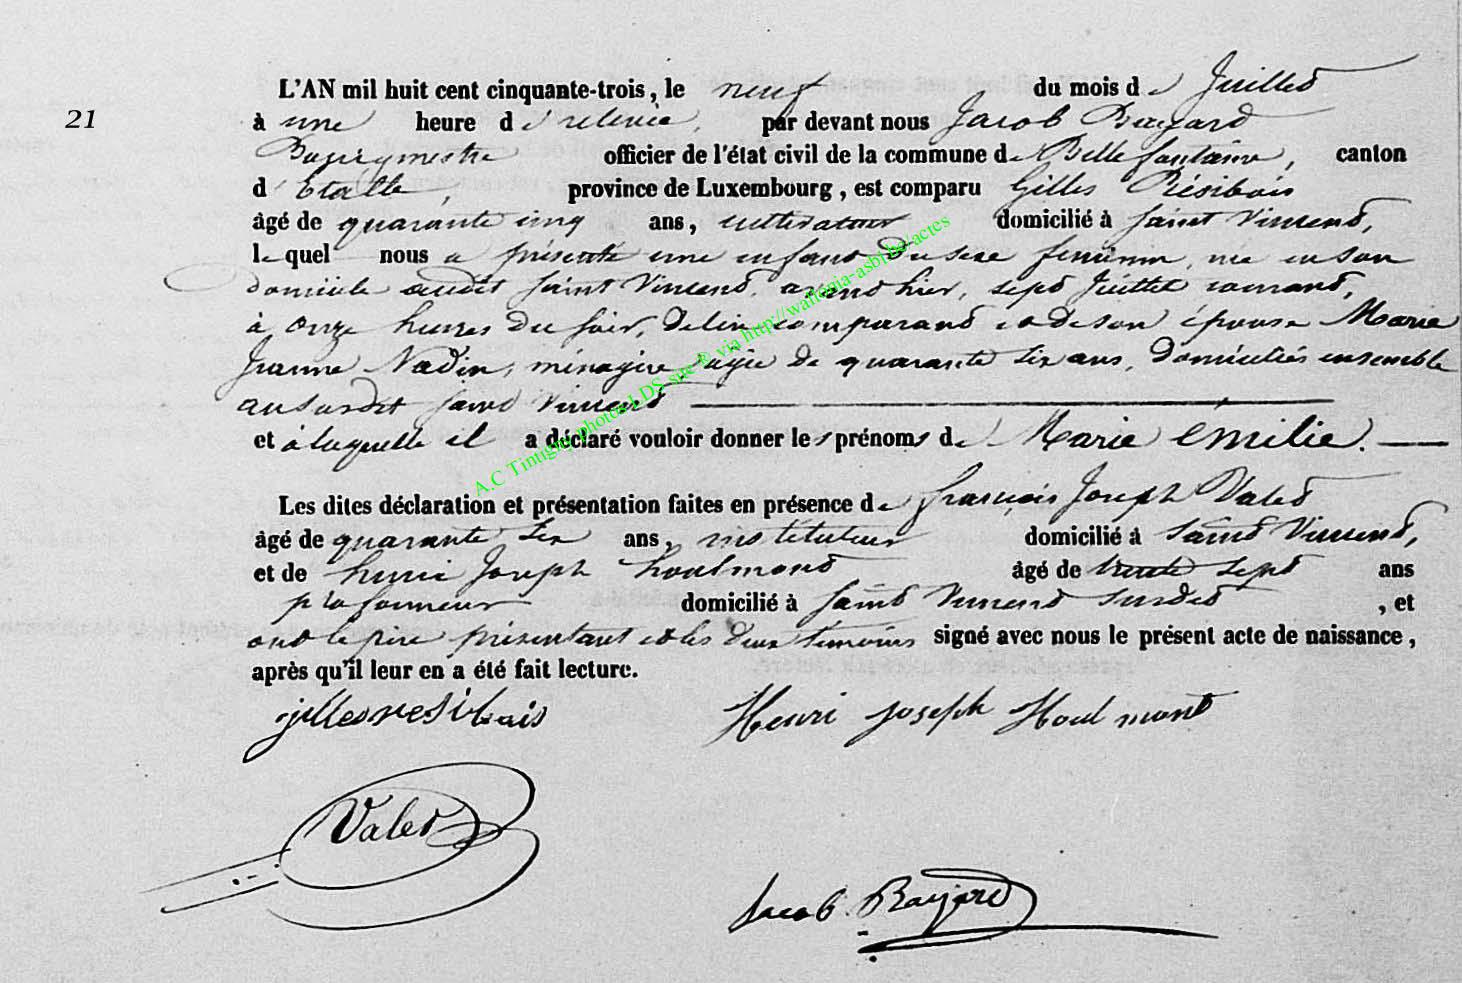 L'AN mil huit cent cinquante-trois, le neuf du mois de Juillet
21
à une heure de relevée, par devant nous Jacob Bayard
Bourgmestre officier de l'état civil de la commune de Bellefontaine, canton
d'Etalle, province de Luxembourg, est comparu Gilles Résibois
âgé de quarante cinq ans, cultivateur domicilié à Saint Vincent,
lequel nous a présenté une enfant du sexe feminin, née en son
domicile audit Saint Vincent, avant hier, sept Juillet courant,
à onze heures du soir, de lui comparant et de son épouse Marie
Jeanne Nadin, ménagère, agée de quarante six ans, domiciliés ensemble
au susdit Saint Vincent
et à laquelle il a déclaré vouloir donner les prénoms de Marie émilie.
Les dites déclaration et présentation faites en présence de françois Joseph Valet
âgé de quarante six ans, instituteur domicilié à Saint Vincent,
et de henri Joseph houlmont âgé de sept ans
domicilié à Saint Vincent susdit, et
ont le père présentant et les deux témoins signé avec nous le présent acte de naissance,
après qu'il leur en a été fait lecture.
gilles resibois Henri joseph Houlmont
Valet
Jacob Bayard
A.C Tintigny photos LDS sue ® via http://wallonia-asbl.be/actes